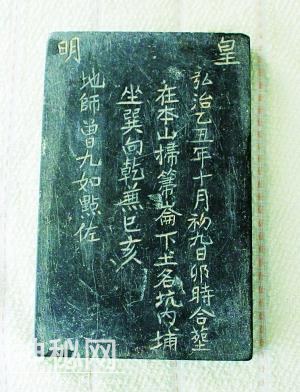 皇明
弘治乙丑年十月初九日卯時合塟
在本山掃箒崙下土名坑內埔
坐巽向乾兼巳亥
地師曾九如點佐
神秘网